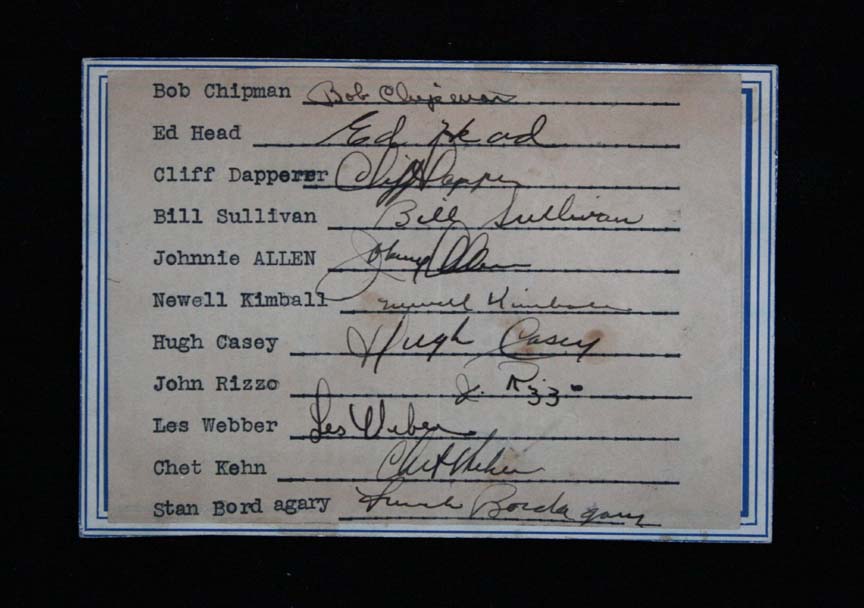 Bob Chipman Bob Chipman
Ed Head Ed Head
Cliff Dapperer Cliff Dapper
Bill Sullivan Bill Sullivan
Johnnie ALLEN Johnny Allen
Newell Kimball Newell Kimball
Hugh Casey Hugh Casey
John Rizzo J. Rizzo
Les Webber Les Webber
Chet Kehn Chet Kehn
Stan Bord agary Bordagaray